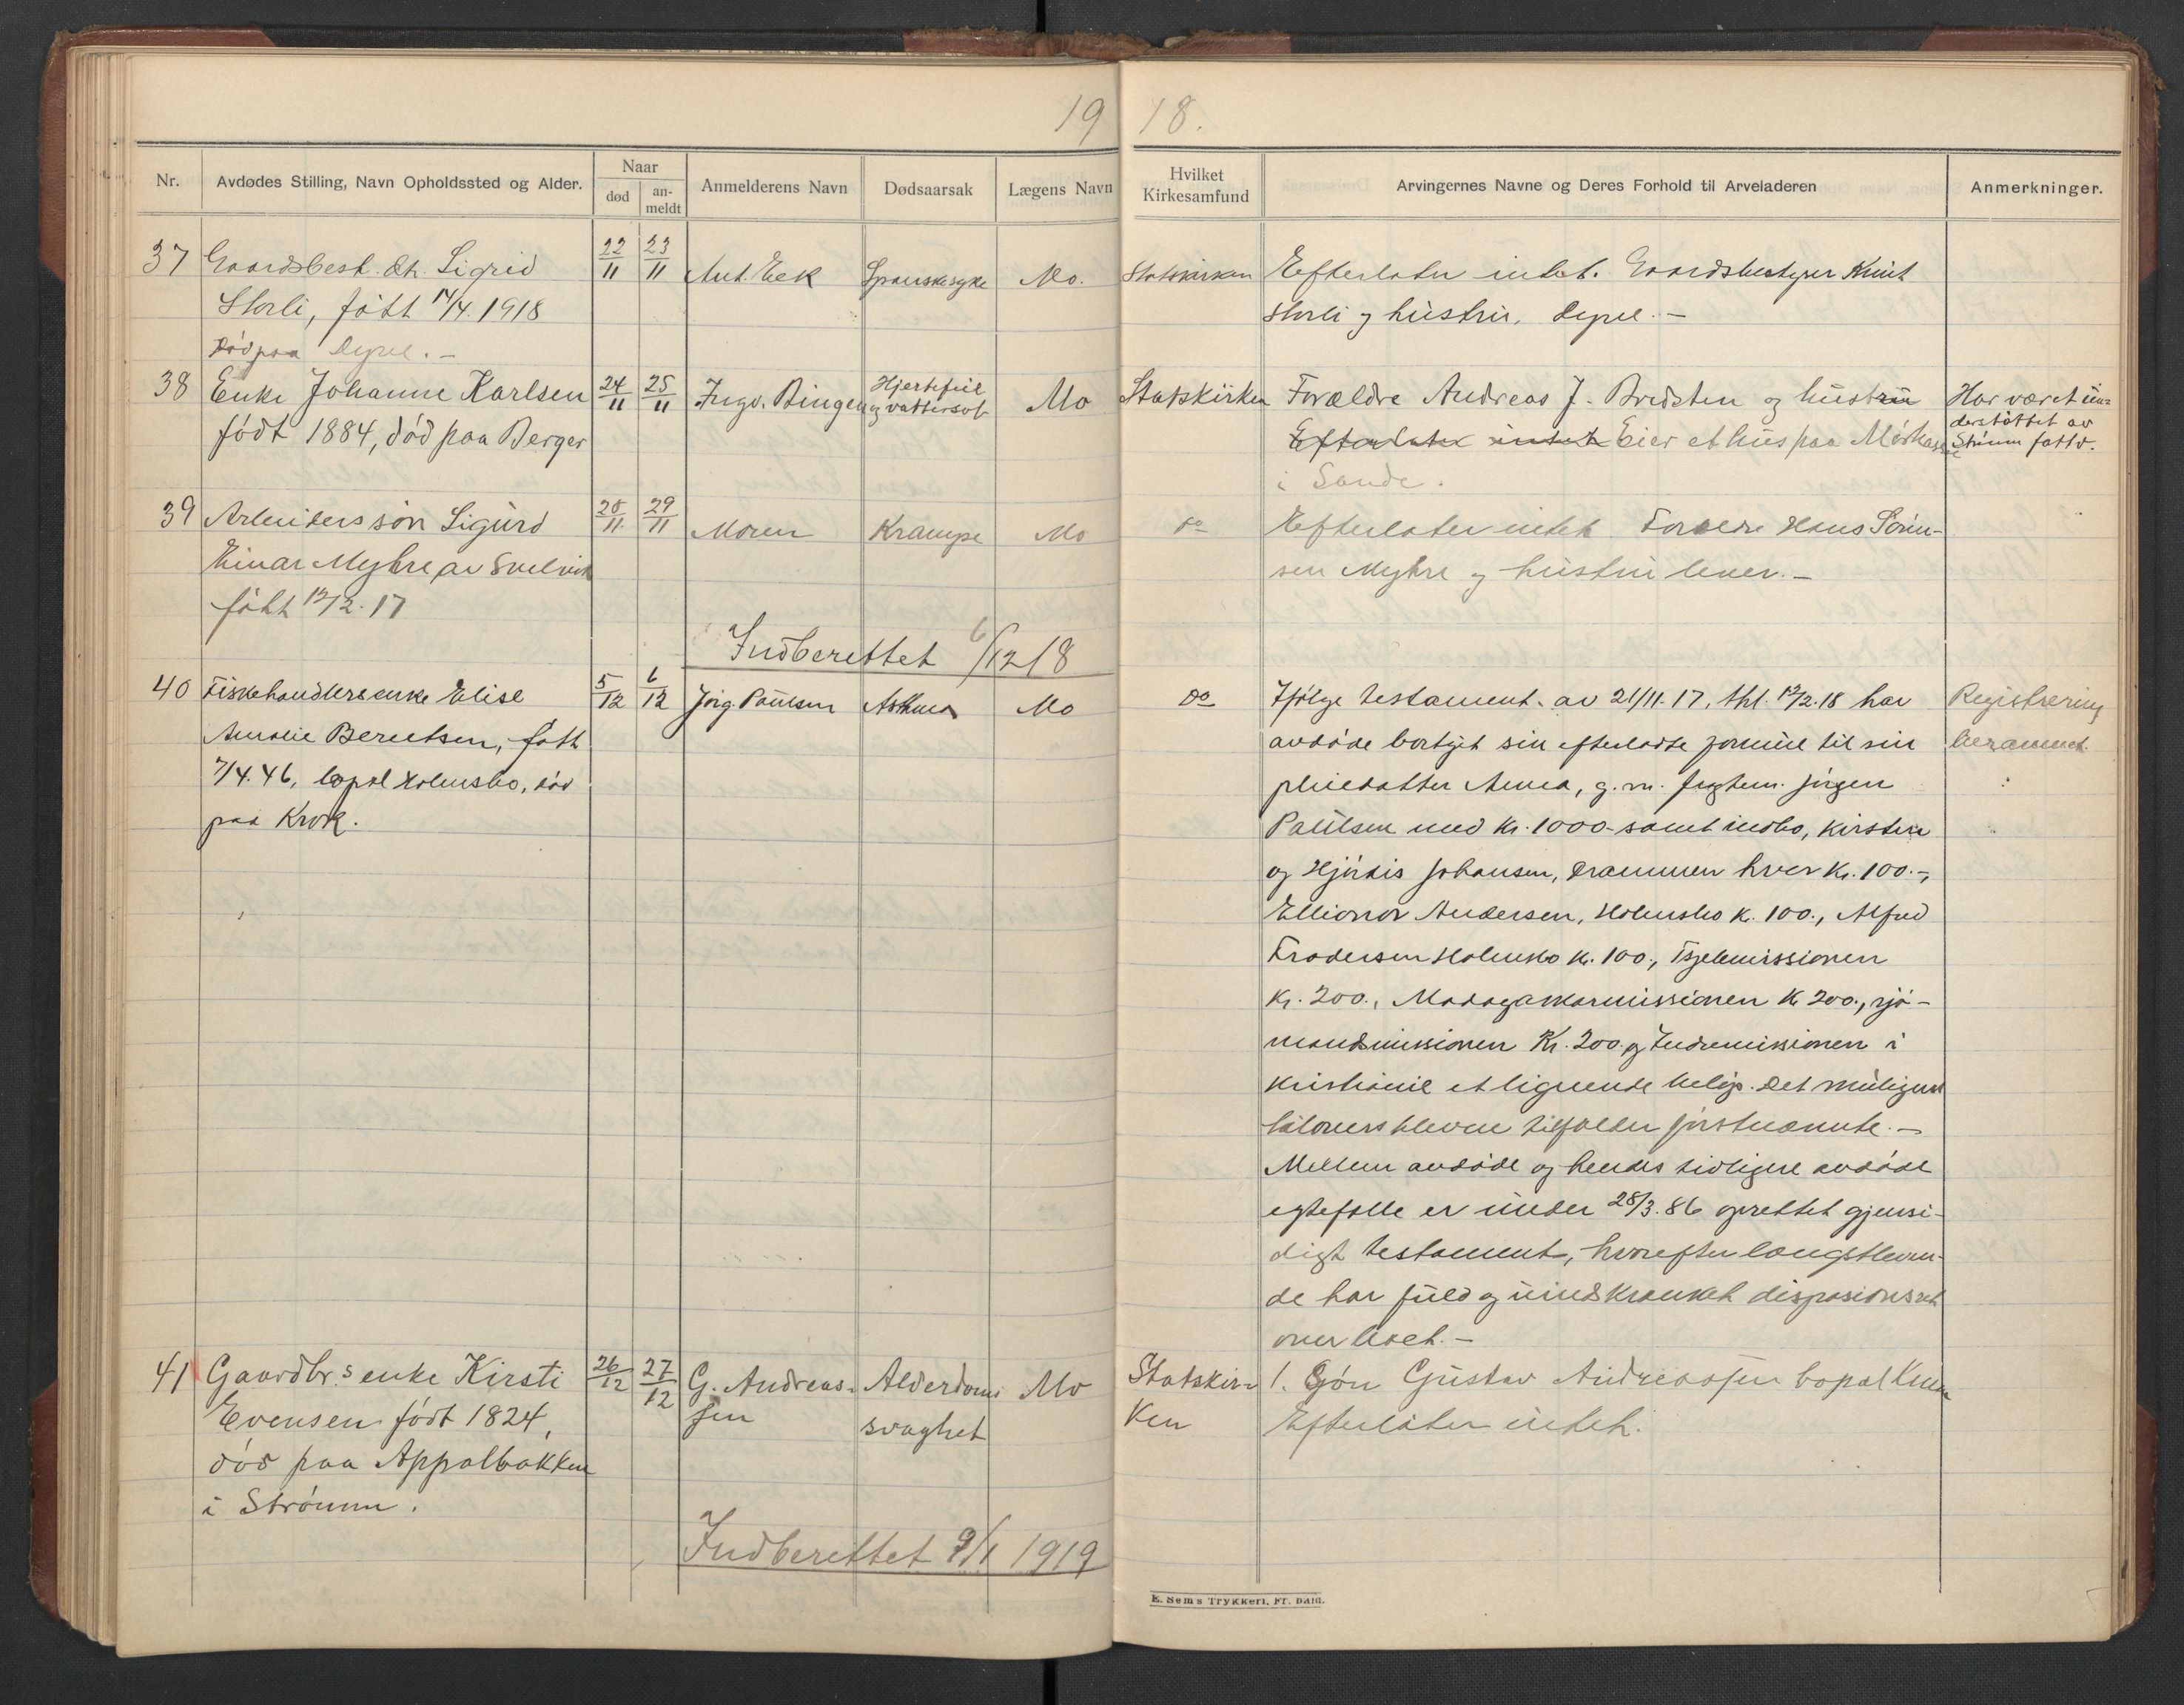 19 18.
Nr. Avdødes Stilling, Navn Opholdssted og Alder. Naar død an-meldt Anmelderens Navn Dødsaarsak Lægens Navn Hvilket Kirkesamfund Arvingernes Navne og Deres Forhold til Arveladeren Anmerkninger.
37 Gaardsbest. dt. Sigrid 22/11 23/11 Ant. Eek Spanskesyke Mo. Statskirken Efterlater intet. Gaardsbestyrer Knut
Storli, født 14/4. 1918 Storli og hustru, Dypel. —
Død paa Dypel. —
38 Enke Johanne Karlsen 24/11 25/11 Ingv. Bingen Hjertefeil og vattersot Mo Statskirken Forældre Andreas J. Bredsten og hustru Har været un-
derstøttet av
født 1884, død paa Berger Efterlater intet Eier et hus paa Strømm fattv.
i Sande.
39 Arbeiders søn Sigurd 20/11. 29/11 Moren Krampe Mo do Efterlater intet Forældre Hans Søren-
Einar Myhre av Svelvik sen Myhre og hustru lever. —
født 12/2. 17
Indberettet 6/12 18
40 Fiskehandlersenke Elise 5/12 6/12 Jørg. Paulsen Asthma Mo do Ifølge testament av 21/11. 17, thl. 12/2. 18 har Registrering
Amalie Berntsen, født avdøde bortgit sin efterladte formue til sin berammet.
7/4. 46, bopæl Holmsbo, død pleiedatter Anna, g. m. Jørgen
paa Krok. Paulsen med Kr. 1000.- samt indbo, Kirsten
og Hjørdis Johansen, Drammen hver Kr. 100.-,
Ellionor Andersen, Holmsbo Kr. 100., Alfred
Frodersen Holmsbo Kr. 100.,
Kr. 200., Madagaskarmissionen Kr 200., sjø-
mandsmissionen Kr. 200. og Indremissionen i
Kristiania et lignende beløp. Det muligens
tiloversblevne tilfalder førstnævnte. —
Mellem avdøde og hendes tidligere avdøde
egtefælle er under 28/3. 86 oprettet gjensi-
digt testament, hvorefter længstleven-
de har fuld og uindskrænket disposionsret
over boet. —
41 Gaardbr.s enke Kirsti 26/12 27/12 G. Andreas- Alderdoms Mo Statskir- 1. Søn Gustav Andreassen bopæl
Evensen født 1824, sen svaghet ken Efterlater intet.
død paa Appalbakken
i Strømm.
Indberettet 9/1 1919
E. Sems Trykkeri, Fr.hald.